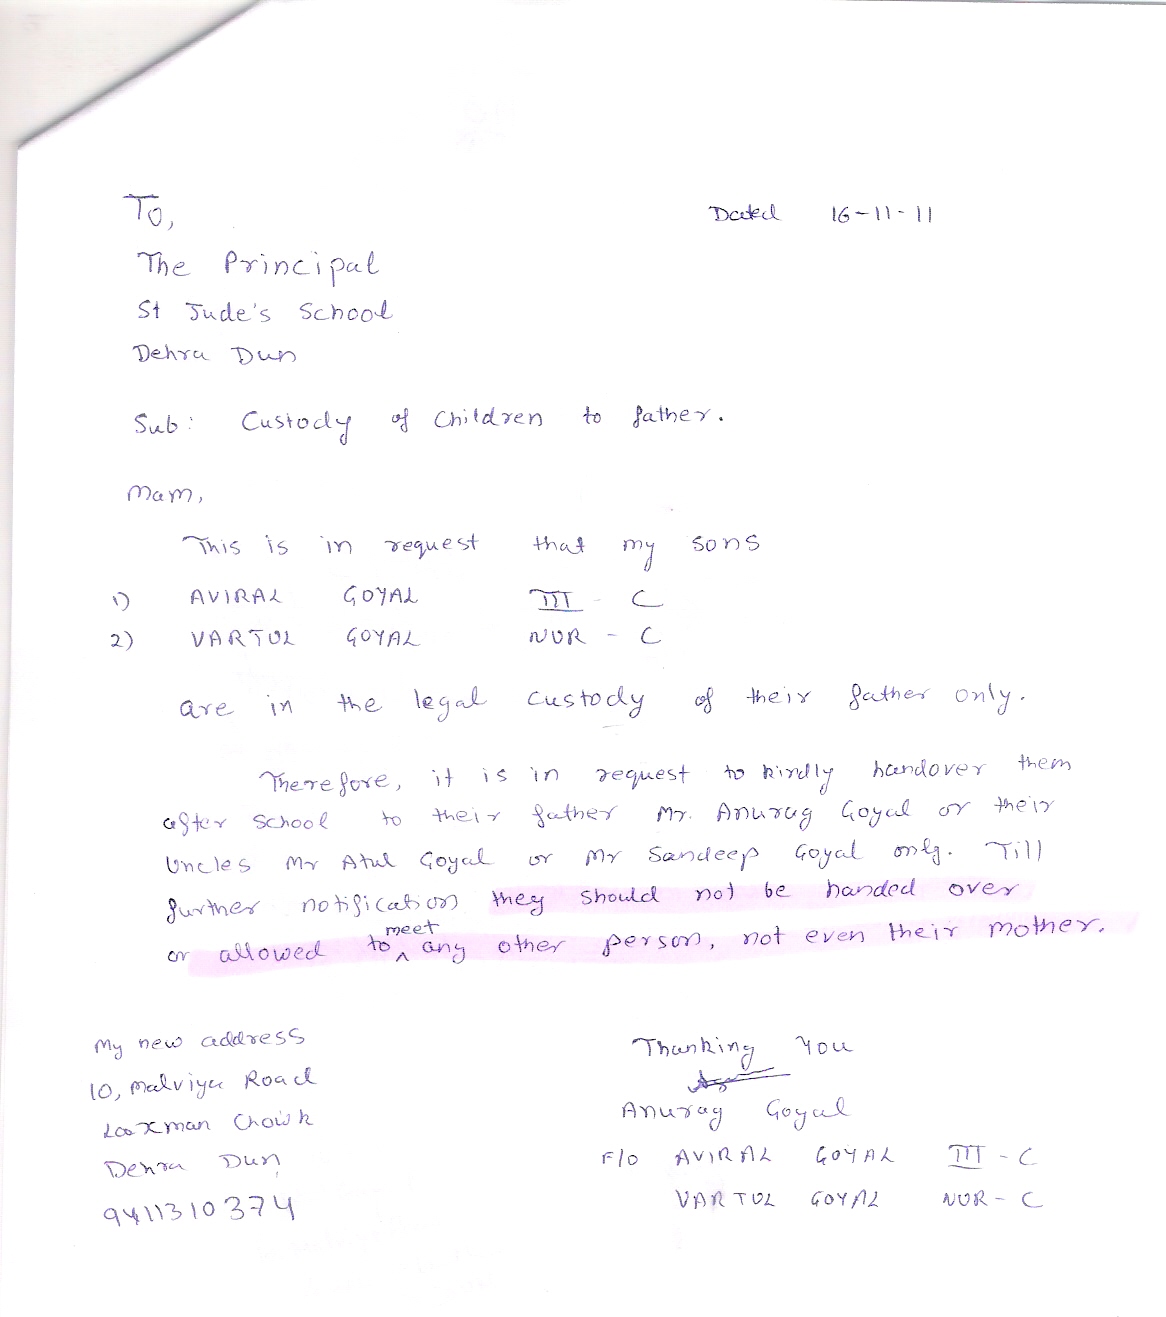 To,
Dated 16-11-11
The Principal
St Jude's School
Dehra Dun
Sub: Custody of Children to father.
Mam,
This is in request that my sons
1) AVIRAL GOYAL III - C
2) VARTUL GOYAL NUR - C
are in the legal custody of their father only.
Therefore, it is in request to kindly handover them
after school to their father Mr. Anurag Goyal or their
Uncles Mr Atul Goyal or Mr Sandeep Goyal only. Till
further notification they should not be handed over
or allowed to meet any other person, not even their mother.
My new address
10, Malviya Road
Laxman Chowk
Dehra Dun
9411310374
Thanking You
Anurag Goyal
F/O AVIRAL GOYAL III - C
VARTUL GOYAL NUR - C